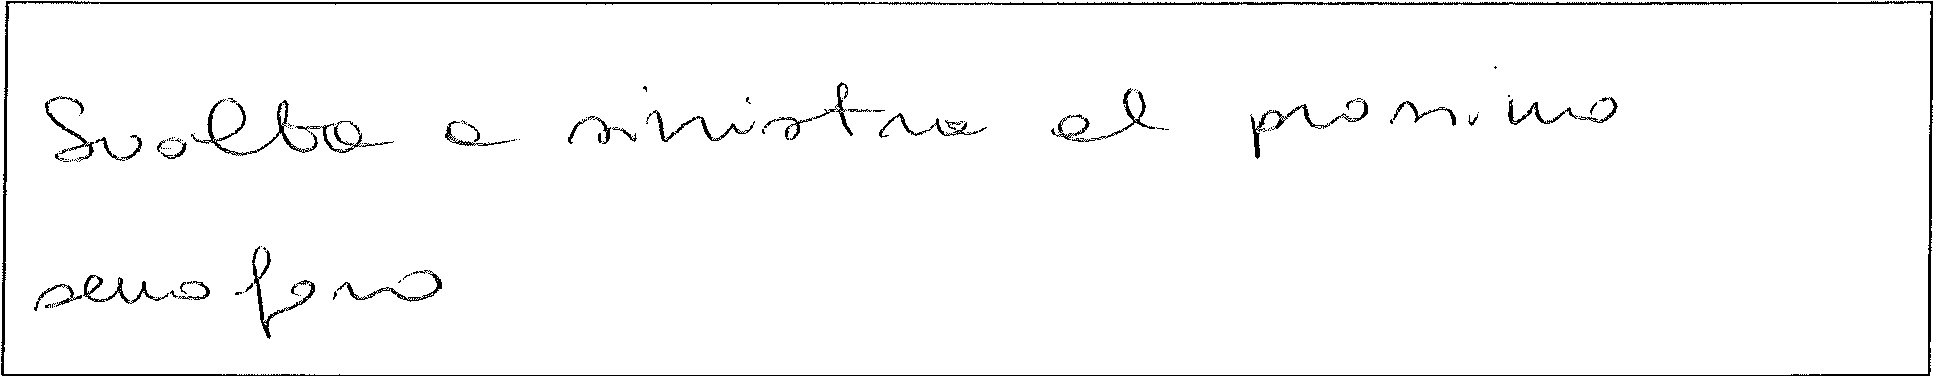 Svolta a sinistra al prossimo
semaforo